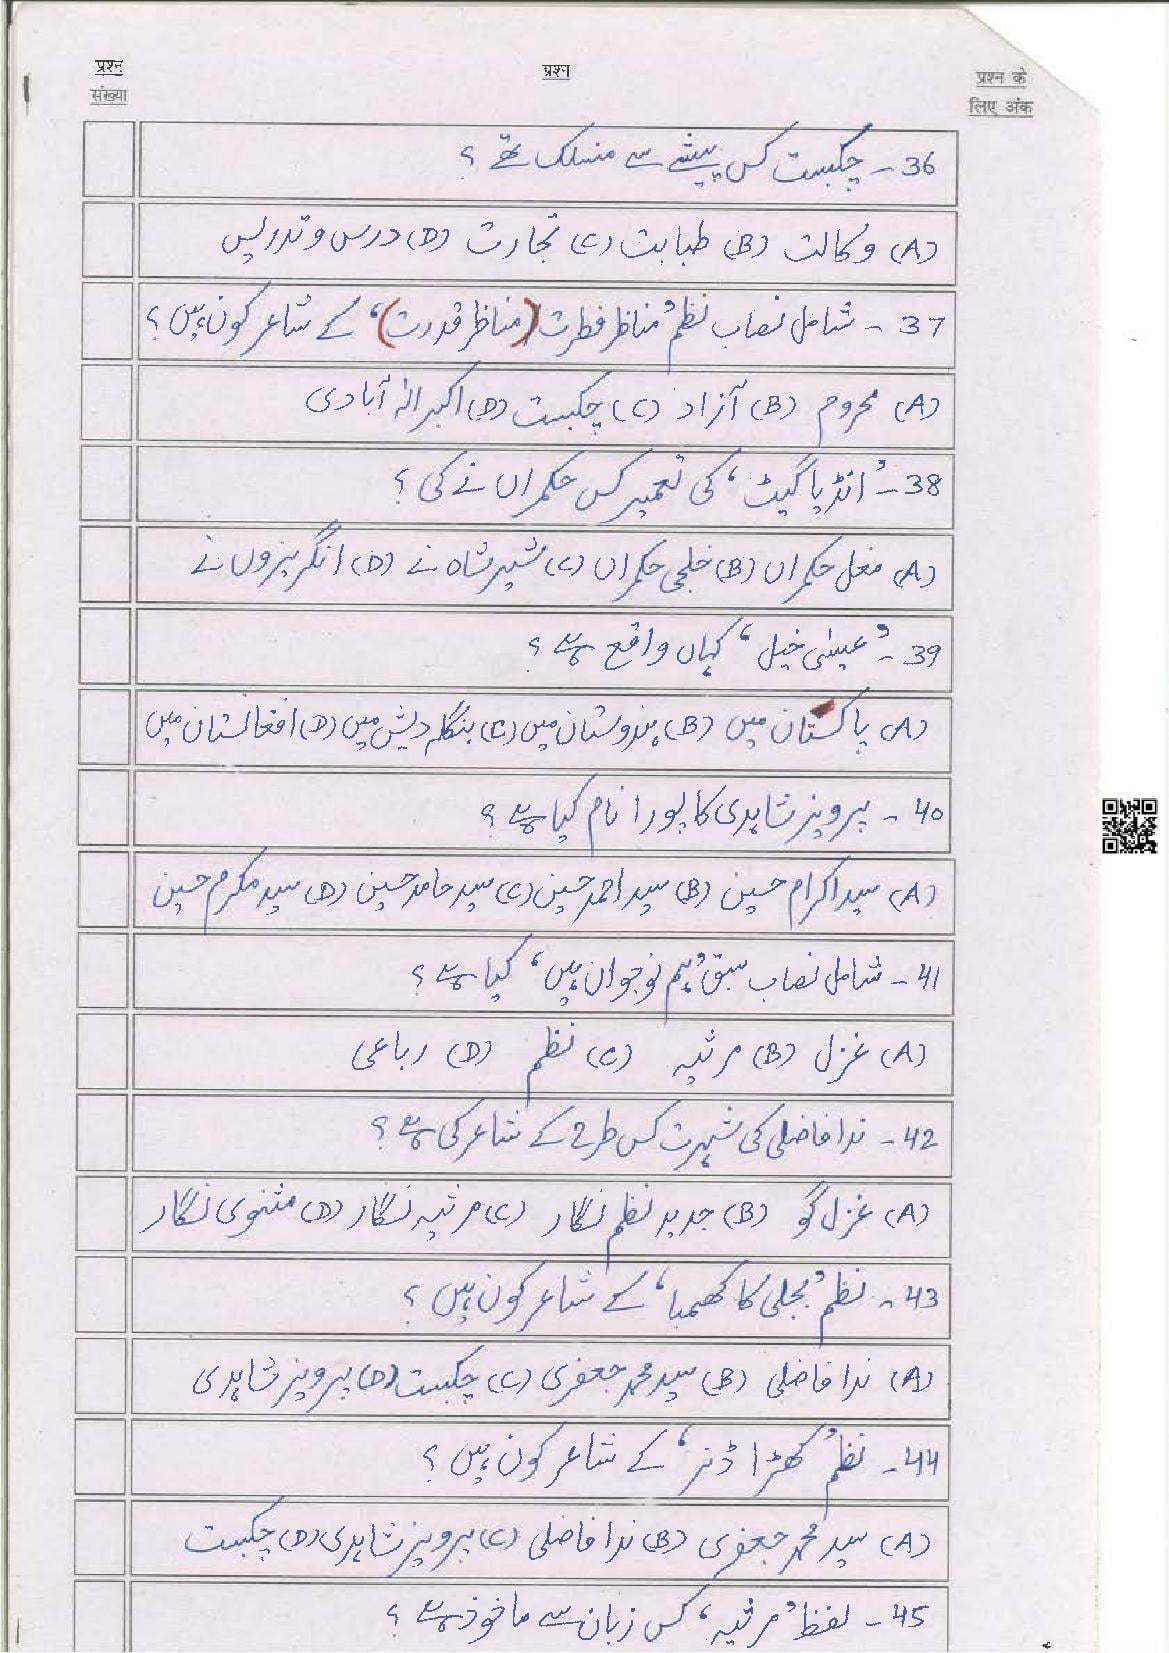 प्रश्न संख्या
प्रश्न
प्रश्न के लिए अंक
36- چکبست کس پیشے سے منسلک تھے ؟
(A) وکالت (B) طبابت (C) تجارت (D) درس و تدریس
37 - شامل نصاب نظم 'مناظر فطرت (مناظر قدرت)' کے شاعر کون ہیں ؟
(A) محروم (B) آزاد (C) چکبست (D) اکبر الہ آبادی
38- 'انڈیا گیٹ' کی تعمیر کس حکمراں نے کی ؟
(A) مغل حکمراں (B) خلجی حکمراں (C) شیر شاہ نے (D) انگریزوں نے
39- 'عیسیٰ خیل' کہاں واقع ہے ؟
(A) پاکستان میں (B) ہندوستان میں (C) بنگلہ دیش میں (D) افغانستان میں
40 - پرویز شاہدی کا پورا نام کیا ہے ؟
(A) سید اکرام حسین (B) سید احمد حسین (C) سید حامد حسین (D) سید مکرم حسین
41- شامل نصاب سبق 'ہم نوجوان ہیں' کیا ہے ؟
(A) غزل (B) مرثیہ (C) نظم (D) رباعی
42- ندا فاضلی کی شہرت کس طرح کے شاعر کی ہے ؟
(A) غزل گو (B) جدید نظم نگار (C) مرثیہ نگار (D) مثنوی نگار
43- نظم 'بجلی کا کھمبا' کے شاعر کون ہیں ؟
(A) ندا فاضلی (B) سید محمد جعفری (C) چکبست (D) پرویز شاہدی
44- نظم 'کھڑا ڈنر' کے شاعر کون ہیں ؟
(A) سید محمد جعفری (B) ندا فاضلی (C) پرویز شاہدی (D) چکبست
45- لفظ 'مرثیہ' کس زبان سے ماخوذ ہے ؟